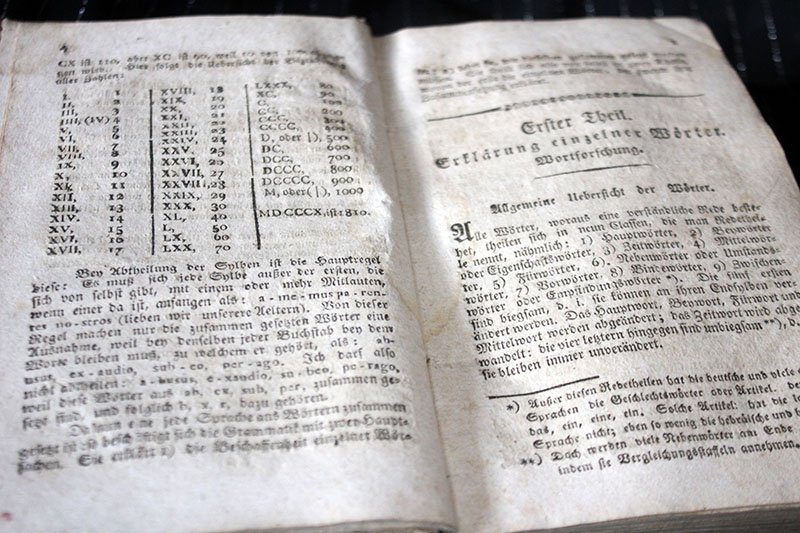 4
CX ist 110, aber XC ist 90, weil 10 von 100
aller Zahlen:
I, 1
II, 2
III, 3
IIII, (IV) 4
V, 5
VI, 6
VII, 7
VIII, 8
IX, 9
X, 10
XI, 11
XII, 12
XIII, 13
XIV, 14
XV, 15
XVI, 16
XVII, 17
XVIII, 18
XIX, 19
XX, 20
XXI, 21
XXII, 22
XXIII, 23
XXIV, 24
XXV, 25
XXVI, 26
XXVII, 27
XXVIII, 28
XXIX, 29
XXX, 30
XL, 40
L, 50
LX, 60
LXX, 70
LXXX, 80
XC, 90
C, 100
CC, 200
CCC, 300
CCCC, 400
D, oder |Ɔ, 500
DC, 600
DCC, 700
DCCC, 800
DCCCC, 900
M, oder 1000
MDCCCX, ist 1810.
Bey Abtheilung der Sylben ist die Hauptregel
diese: Es muß sich jede Sylbe außer der ersten, die
sich von selbst gibt, mit einem oder mehr Mitlauten,
wenn einer da ist, anfangen als: a-me-mus pa-ren-
tes no-stros (lieben wir unsere Aeltern). Von dieser
Regel machen nur die zusammen gesetzten Wörter eine
Ausnahme, weil bey denselben jeder Buchstab bey dem
Worte bleiben muß, zu welchem er gehört, als: ab-
usus, ex-audio, sub-eo, per-ago. Ich darf also
nicht abtheilen: a-busus, e-xaudio, su-beo, pe-rago,
weil diese Wörter aus ab, ex, sub, per, zusammen ge-
setzt sind, und folglich b, x, r, dazu gehören.
Da nun eine jede Sprache aus Wörtern zusammen
gesetzt ist: so beschäftigt sich die Grammatik mit zwey Haupt-
sachen. Sie erklärt 1) die Beschaffenheit einzelner Wör-
Erster Theil.
Erklärung einzelner Wörter.
Wortforschung.
Allgemeine Uebersicht der Wörter.
Alle Wörter, woraus eine verständliche Rede beste-
het, theilen sich in neun Classen, die man Redethei-
le nennt, nähmlich: 1) Hauptwörter, 2) Beywörter
oder Eigenschaftswörter, 3) Zeitwörter, 4) Mittelwör-
ter, 5) Fürwörter, 6) Nebenwörter oder Umstands-
wörter, 7) Vorwörter, 8) Bindewörter, 9) Zwischen-
wörter oder Empfindungswörter *). Die fünf ersten
sind biegsam, d. i. sie können in ihren Endsylben ver-
ändert werden. Das Hauptwort, Beywort, Fürwort und
Mittelwort werden abgeändert; das Zeitwort wird abge-
wandelt: die vier letztern hingegen sind unbiegsam **), d.
sie bleiben immer unverändert.
*) Außer diesen Redetheilen hat die deutsche und viele
Sprachen die Geschlechtswörter oder Artikel. der
das, ein, eine, ein. Solche Artikel hat die
Sprache nicht; eben so wenig die hebräische und
**) Doch werden viele Nebenwörter am Ende
indem sie Vergleichungsstaffeln annehmen.